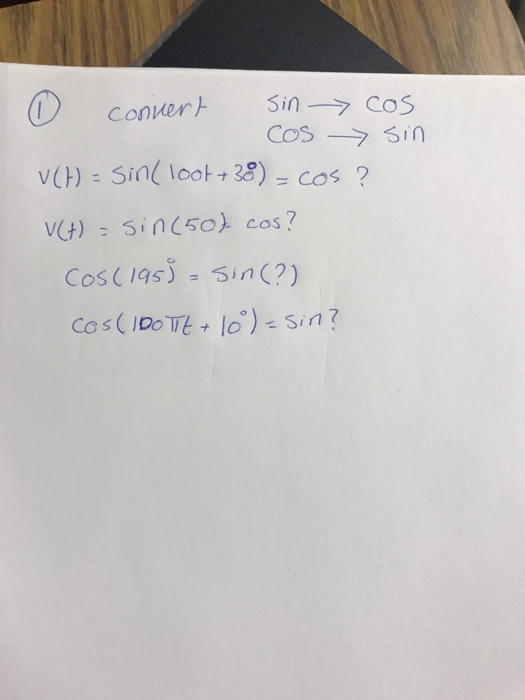 ① convert sin → cos
cos → sin
v(t) = sin(100t + 30°) = cos ?
v(t) = sin(50) cos?
cos(195°) = sin(?)
cos(100πt + 10°) = sin?